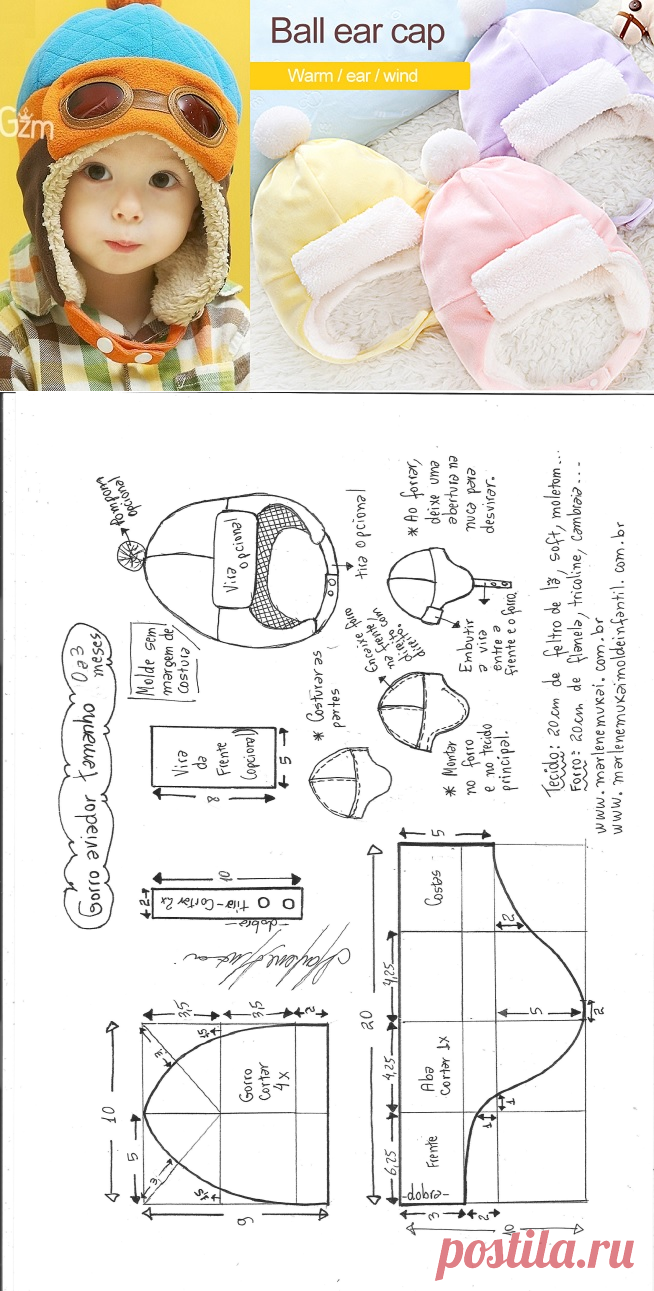 Ball ear cap
Warm / ear / wind
Gzm
Pompom
opcional
Vira
Opcional
tira opcional
* Ao forrar,
deixe uma
abertura na
nuca para
desvirar.
Gorro aviador tamanho 0 a 3
meses
Molde sem
margem de
costura
Vira
da
Frente
(opcional)
5
8
* Costurar as
partes
Encaixe forro
na frente/
direito com
direito.
* Montar
no forro
e no tecido
principal.
Embutir
a vira
entre a
frente e o forro.
Tecido: 20cm de feltro de lã, soft, moletom...
Forro: 20cm de flanela, tricoline, cambraia...
www.marlenemukai.com.br
www.marlenemukaimoldeinfantil.com.br
10
2
tira - Cortar 2x
-dobra-
Gorro
Cortar
4x
10
5
3,5
3,5
2
1,5
3
3
1,5
9
Costas
Aba
Cortar 1x
Frente
-dobra-
20
4,25
4,25
6,25
5
2
5
2
1
1
3
2
10
postila.ru